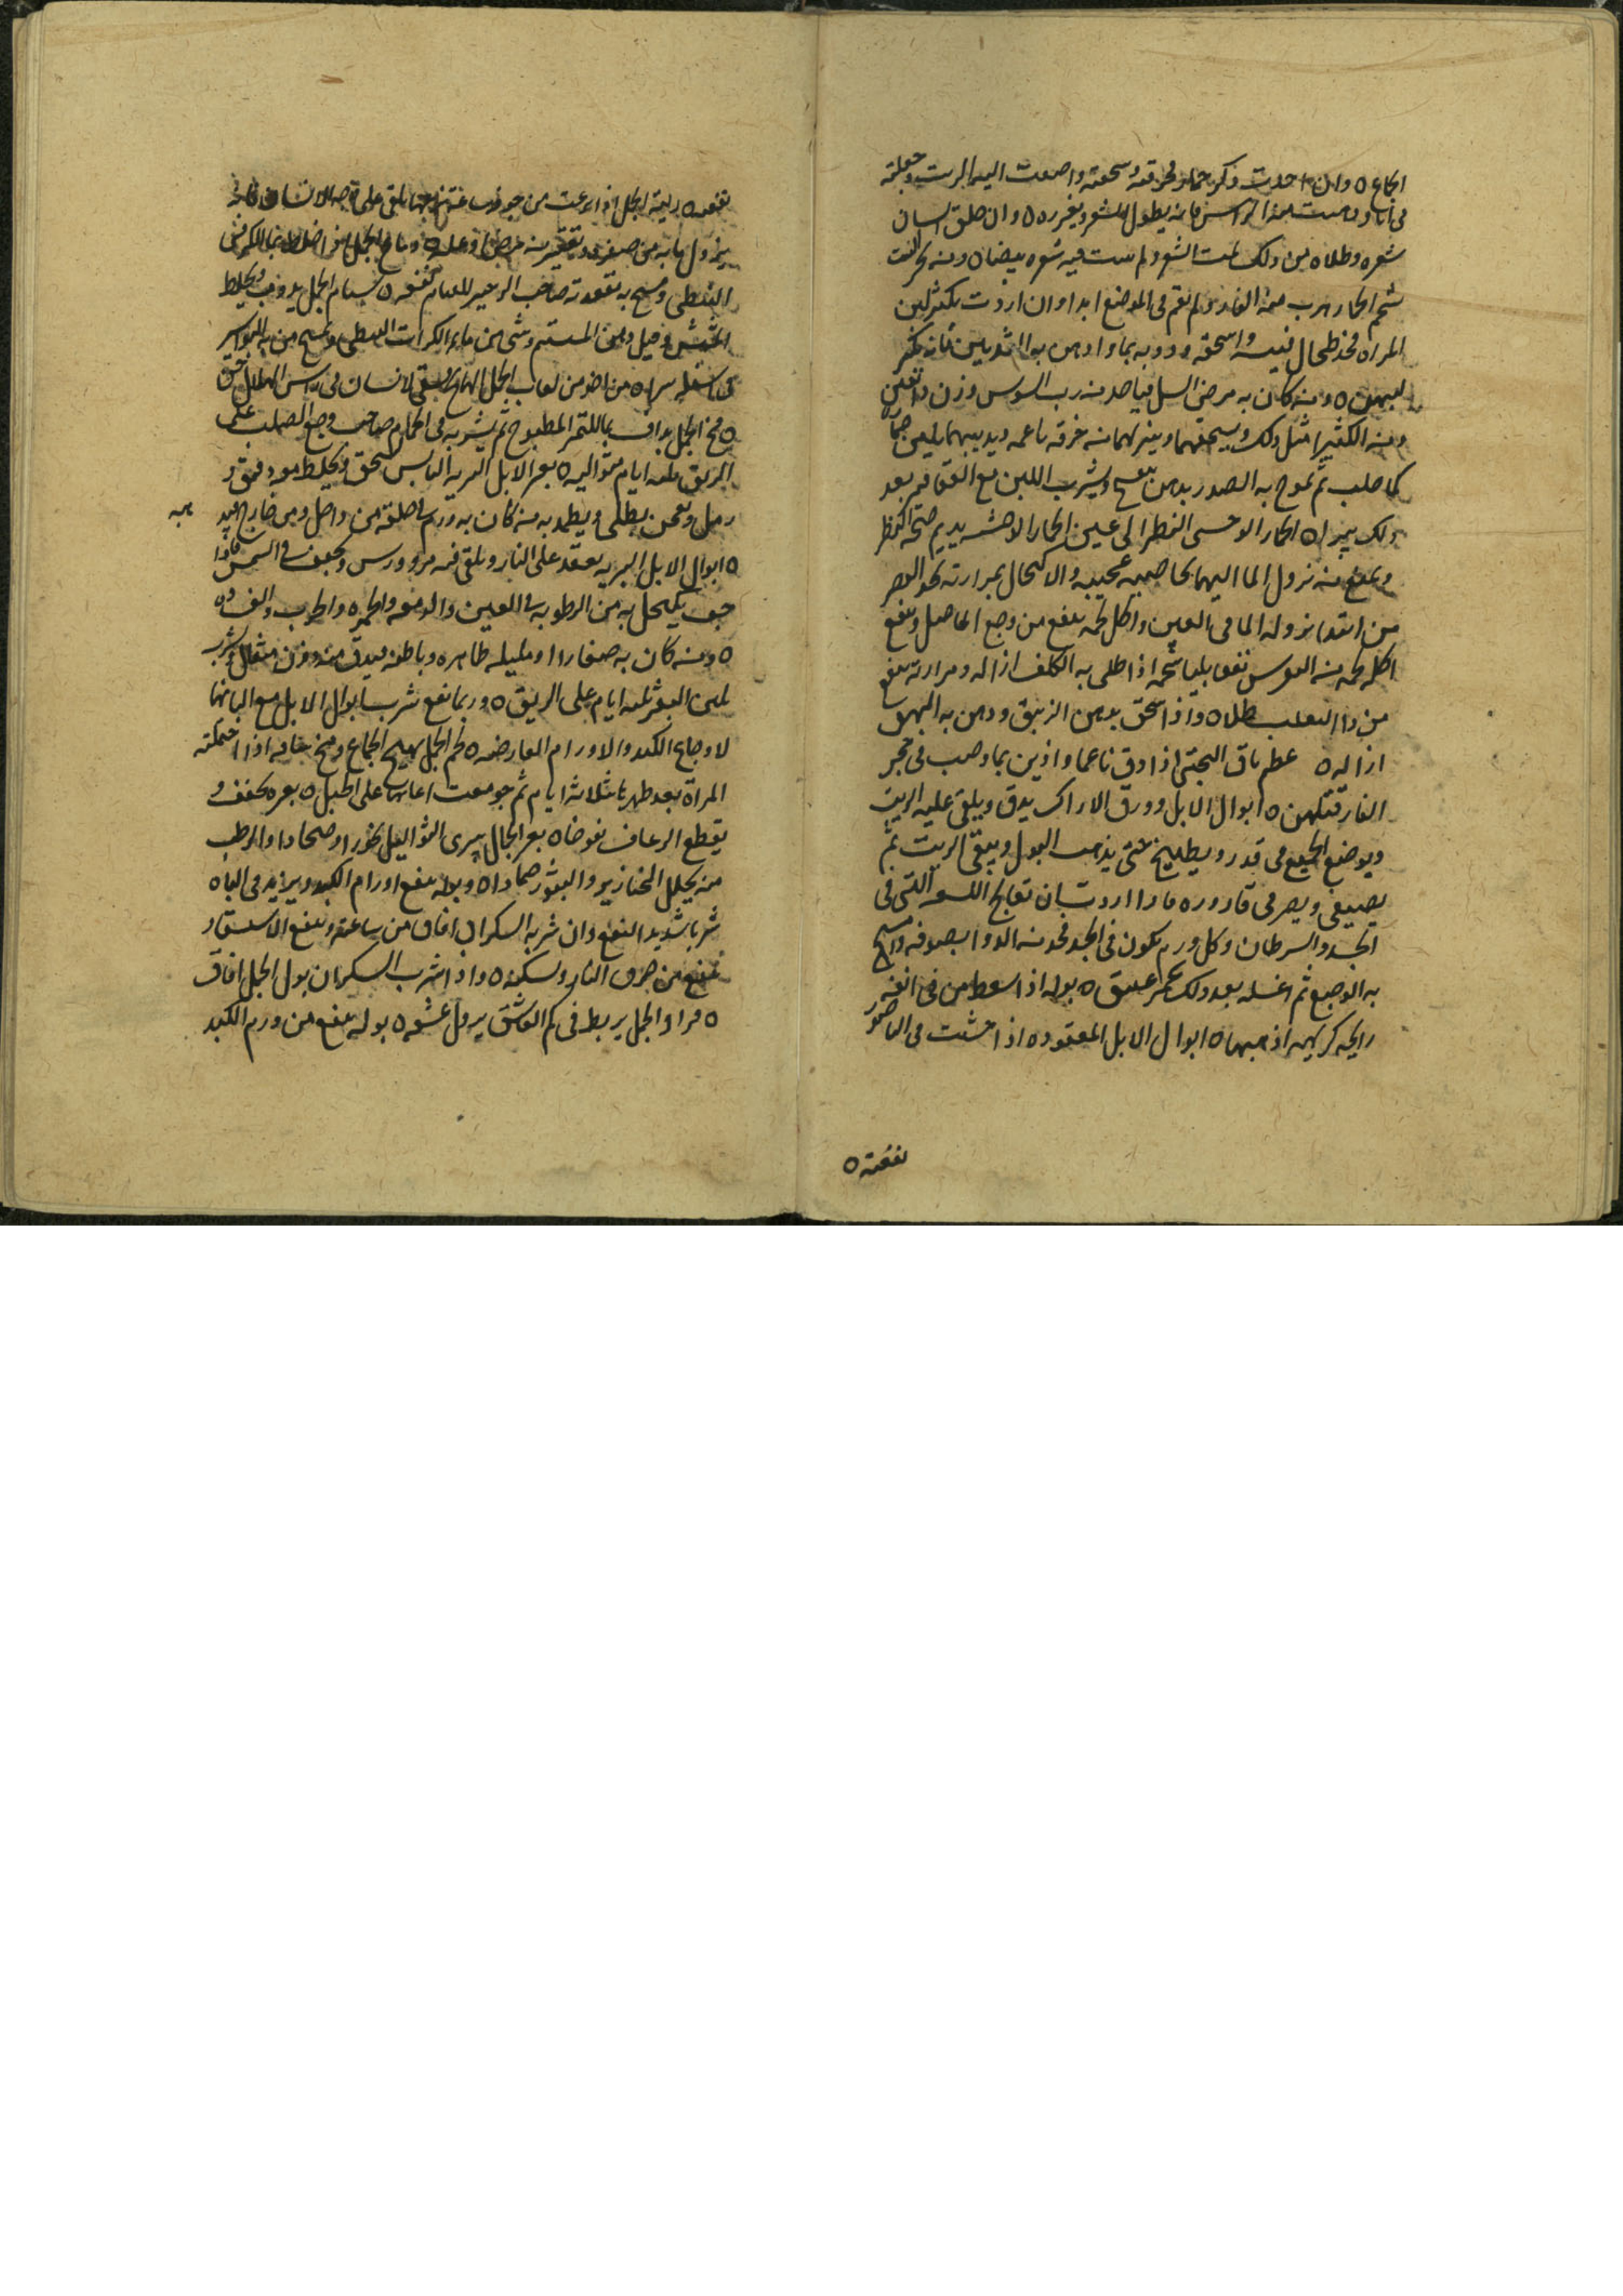 الجماع ٥ وان اخذت ذكر حمار فحرقته وسحقته واضفت اليه الزيت وجعلته
فى انا ودهنت به الراس فانه يطول الشعر ويغزره ٥ وان حلق انسان
شعره وطلاه من ذلك نبت الشعر ولم ينبت فيه شعره بيضا ٥ ومن بخر البيت
شحم الحمار هرب منه الفار ولم يقم فى الموضع ابدا وان اردت يكثر لبن
المراة فخذ طحال واسحقه ودوبه بما وادهن به الثديين فانه يكثر
لبنهن ٥ ومن كان به مرض السل فياخذ من رب السوس وزن دانقين
ومن الكثيرا مثل ذلك ويسحقهما وينزلهما من خرقه ناعمه ويدبيهما بلبن حماره
كما حلب ثم تموخ به الصدر بدهن بنفسج ويشرب اللبن مع العقاقير بعد
ذلك يبرا ٥ الحمار الوحشى النظر الى عين الحمار الوحش يديم صحة النظر
ويمنع من نزول الما اليهما بخاصيه عجيبه والاكتحال بمرارته يحد البصر
من ابتدا نزول الما فى العين واكل لحمه ينفع من وجع المفاصل وينفع
اكل لحمه من النقرس نفعا بليغا شحمه اذا طلى به الكلف ازاله ومرارته ينفع
من دا الثعلب طلا ٥ واذا سحق بدهن الزنبق ودهن به البهق
ازاله ٥ عظم ساق البختى اذا دق ناعما واذيب بما وصب فى حجر
الفار قتلهن ٥ ابوال الابل وورق الاراك يدق ويلقى عليه الزيت
ويوضع الجميع فى قدر ويطبخ حتى يذهب البول ويبقى الزيت ثم
يصفى ويصير فى قاروره فاذا اردت ان تعالج اللسعه التى فى
الجسد والسرطان وكل ورم يكون فى الجسد فخذ من الدوا بصوفه وامسح
به الوجع ثم اغسله بعد ذلك بخمر عتيق ٥ بوله اذا استعط من فى انفه
رايحه كريهه اذهبها ٥ ابوال الابل المعقوده اذا حشت فى الناصور
نفعته ٥
نفعه ٥ رية الجمل اذا نزعت من جوفه ... على وجه الانسان فانه
يزول ما به من صفره وتغيير من مرض او عله ٥ ودماغ الجمل اذا خلط بما الكراث
النبطى ومسح به مقعدة صاحب الزحير للعيارم نفعه ٥ سنام الجمل يدوب ويخلط
... ودهن المشمش وشى من ما الكراث النبطى ويمسح من به البواسير
فى اسفله يبرا ٥ من اخذ من لعاب الجمل الهايج ويسقى لانسان فى راس الهلال جن
٥ مخ الجمل يداف بما التمر المطبوخ ثم يشربه فى الحمام صاحب وجع الصلب على
الريق ثلثه ايام متواليه ٥ بعر الابل البريه اليابس يسحق ويخلط معه دقيق و
رمل ويعجن بخل ويطلى ويضمد به من كان به ورم فى حلقه من داخل ومن خارج فيه
٥ ابوال الابل البريه يعقد على النار ويلقى فيه مر وورس ويجفف فى الشمس فاذا
جف يكتحل به من الرطوبه فى العين والدمعه والحمره والجرب والغشاوه
٥ ومن كان به صفارا او مليله ظاهره وباطنه فيدق منه وزن مثقال ويشرب
بلبن البقر ثلثه ايام على الريق ٥ وربما نفع شرب ابوال الابل مع البانها
لاوجاع الكبد والاورام العارضه ٥ لحم الجمل يهيج الجماع ومخ ساقه اذا احتملته
المراة بعد طهرها ثلاثة ايام ثم جومعت اعانها على الحبل ٥ بعره يجفف و
يقطع الرعاف نفوخا ٥ بعر الجمال يبرى الثواليل بخورا وضمادا والرطب
منه يحلل الخنازير والبثور ضمادا ٥ وبوله ينفع اورام الكبد ويزيد فى الباه
شربا شديد النفع وان شربه السكران افاق من ساعته وينفع الاستسقا و
ينفع من حرق النار ويسكنه ٥ واذا شرب السكران بول الجمل افاق
٥ قراد الجمل يربط فى كم العاشق يزول عشقه ٥ بوله ينفع من ورم الكبد